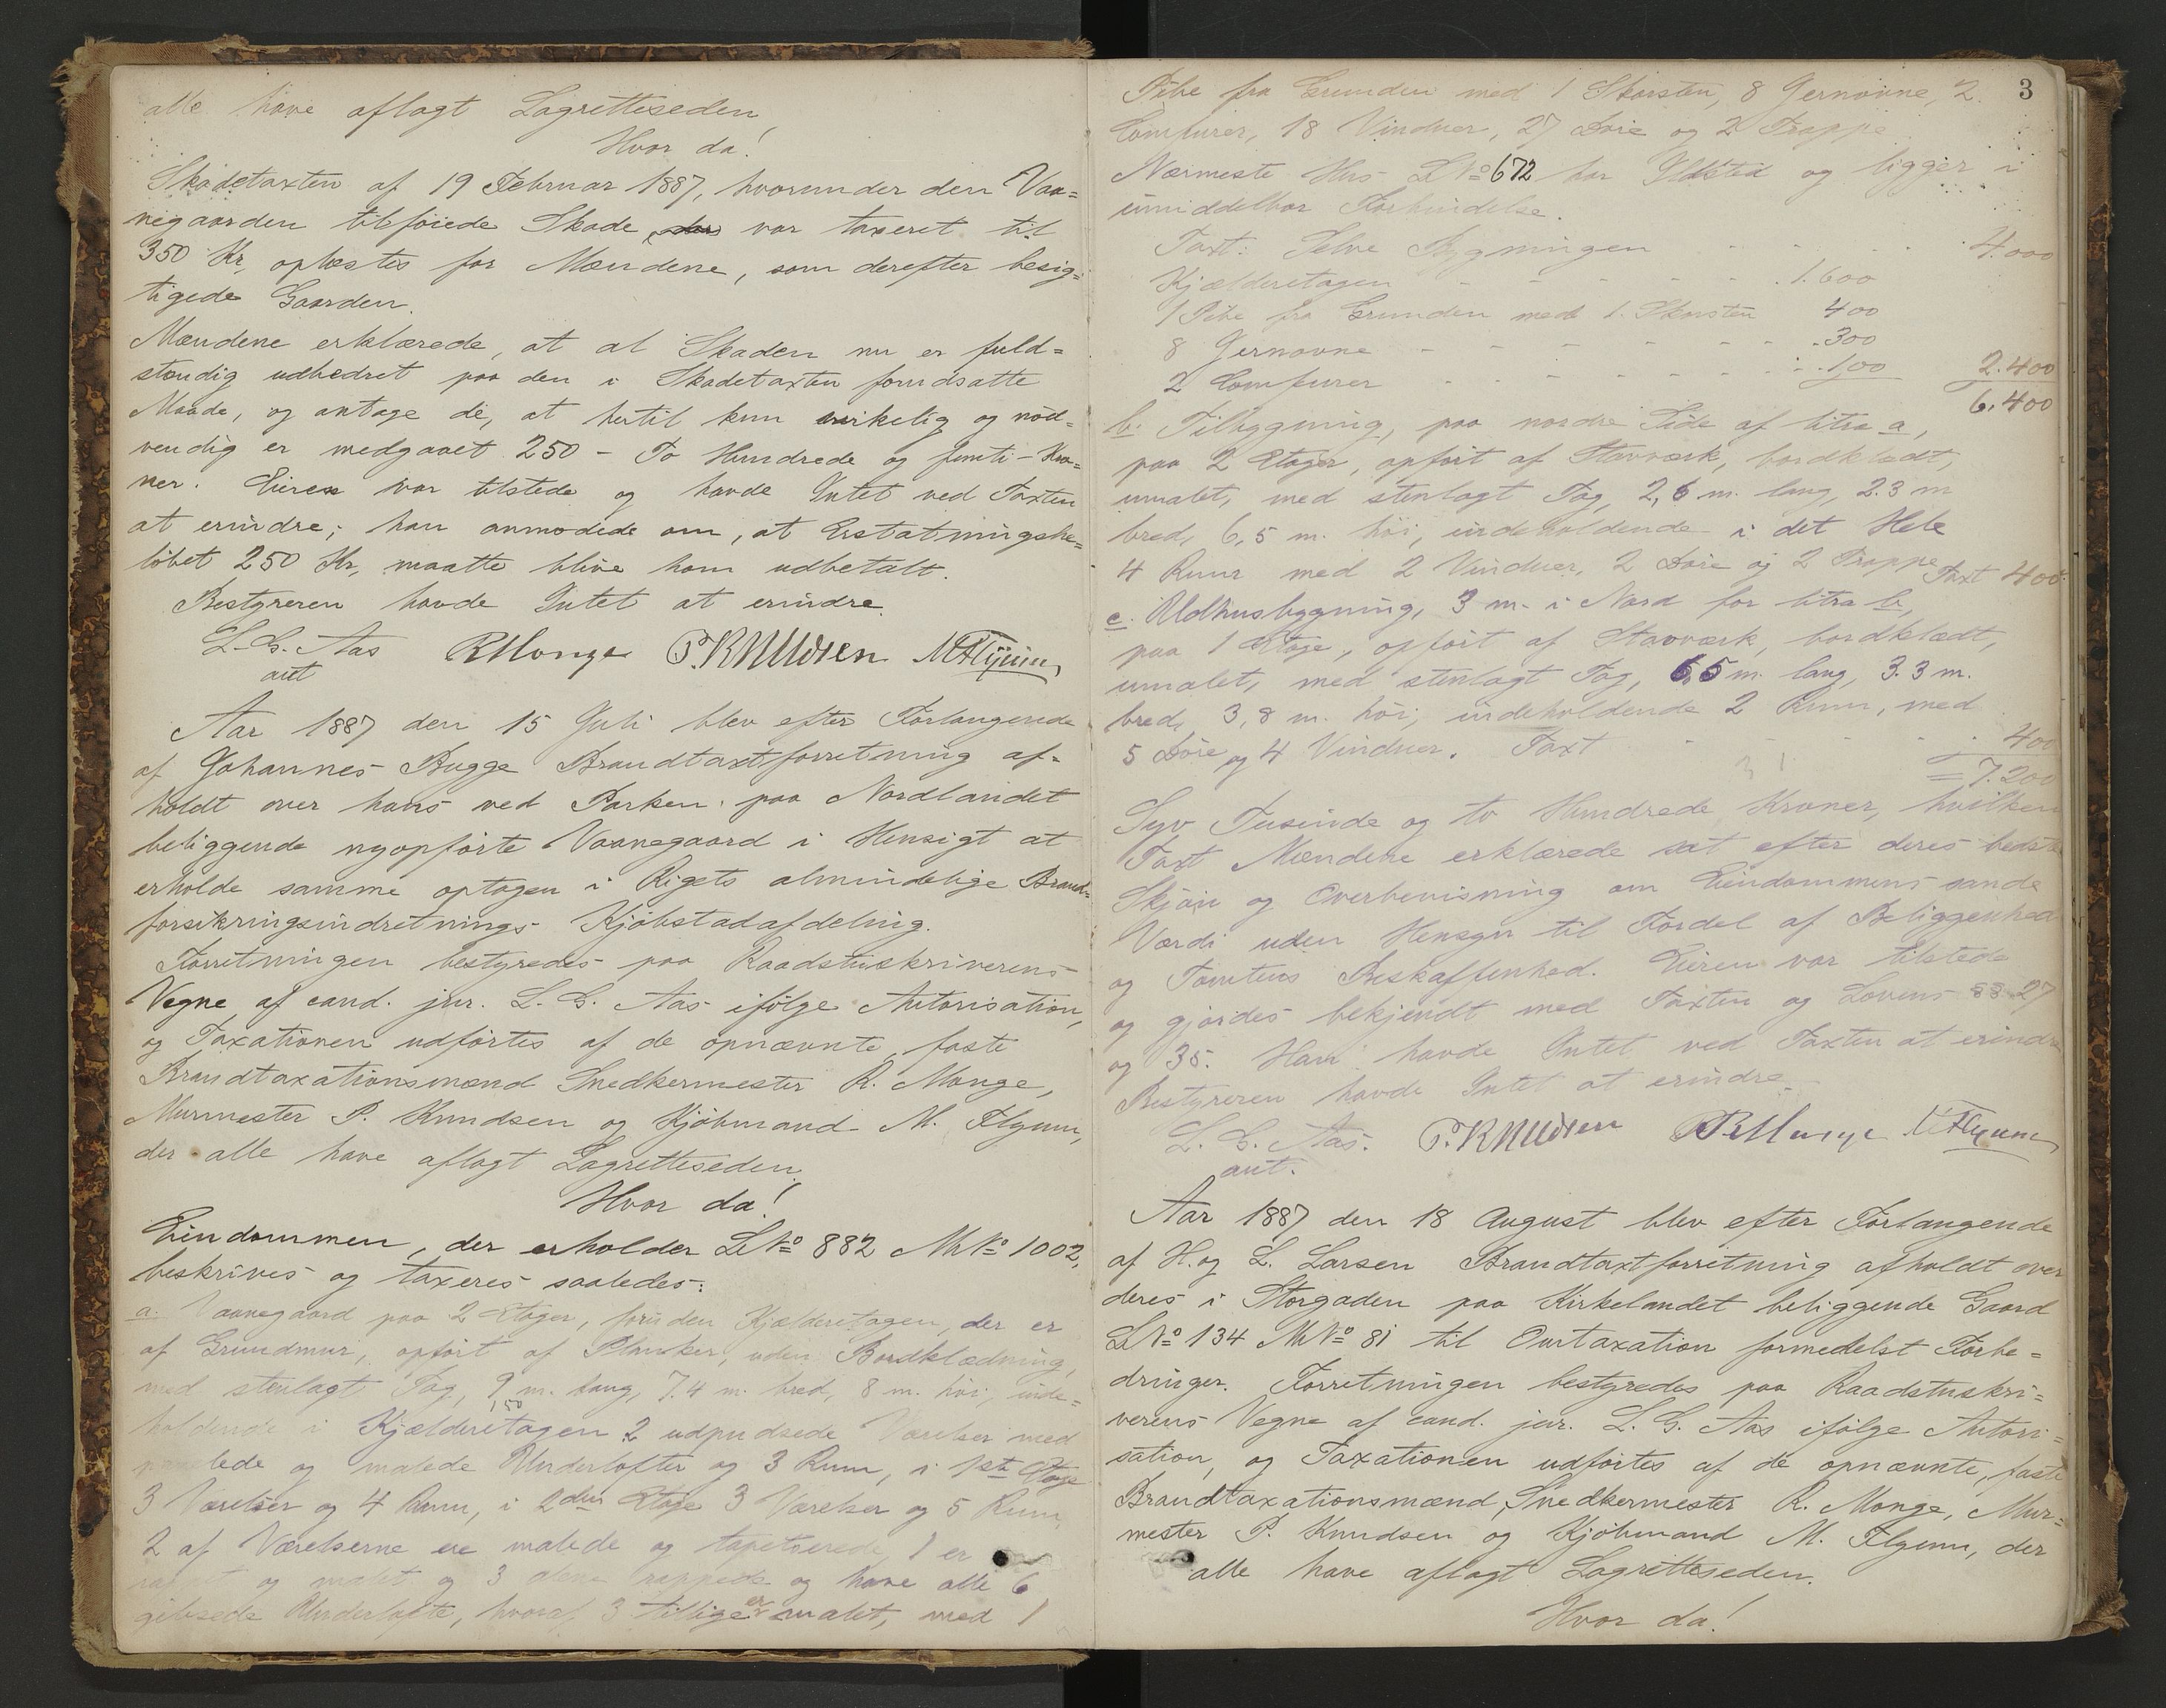 alle have aflagt Lagretteseden,
Hvor da!
Skadetaxten af 19 Februar 1887, hvorunder den Vaa=
negaarden tilføiede Skade var taxeret til
350 Kr, oplæstes for Mændene, som derefter besig=
tigede Gaarden.
Mændene erklærede, at al Skaden nu er fuld=
stændig udbedret paa den i Skadetaxten forudsatte
Maade, og antage de, at hertil kun virkelig og nød=
vendig er medgaaet 250 - To Hundrede og femti - Kro=
ner. Eieren var tilstede og havde Intet ved Taxten
at erindre; han anmodede om, at Erstatningsbe=
løbet 250 Kr, maatte blive ham udbetalt.
Bestyreren havde Intet at erindre.
L. G. Aas RMonge P. KNUdsen MFlyum
aut
Aar 1887 den 15 Juli blev efter Forlangende
af Johannes Bugge Brandtaxtforretning af=
holdt over hans ved Parken paa Nordlandet
beliggende nyopførte Vaanegaard i Hensigt at
erholde samme optagen i Rigets almindelige Brand=
forsikringsindretnings Kjøbstadafdeling.
Forretningen bestyredes paa Raadstuskriverens
Vegne af cand. jur. L. G. Aas ifølge Autorisation,
og Taxationen udførtes af de opnævnte, faste
Brandtaxationsmænd Snedkermester R. Monge,
Murmester P. Knudsen og Kjøbmand M. Flyum,
der alle have aflagt Lagretteseden.
Hvor da!
Eiendommen, der erholder LNo 882 MNo 1002,
beskrives og taxeres saaledes:
a. Vaanegaard paa 2 Etager, foruden Kjælderetagen, der er
af Grundmur, opført af Planker, uden Bordklædning,
med stenlagt Tag, 9 m. lang, 7.4 m. bred, 8 m. høi, inde=
,50
holdende i Kjælderetagen 2 udpudsede Værelser med
panelede og malede Underlofter og 3 Rum, i 1ste Etage
3 Værelser og 4 Rum, i 2den Etage 3 Værelser og 5 Rum,
2 af Værelserne ere malede og tapetserede, 1 er
og malet og 3 alene rappede og have alle 6
gibsede Underlofte, hvoraf 3 tillige er malet, med 1
3
Pibe fra Grunden med 1 Skorsten, 8 Jernovne, 2
Comfurer, 18 Vinduer, 27 Døre og 2 Trappe
Nærmeste Hus LNo 672 har Ildsted og ligger i
umiddelbar Forbindelse.
Taxt: Selve Bygningen - - - 4.000
Kjælderetagen - - - - - 1.600
1 Pibe fra Grunden med 1. Skorsten 400
8 Jernovne - - - - - - - 300
2 Comfurer - - - - - - - 100 2.400
6.400
b. Tilbygning, paa nordre Side af litra a,
paa 2 Etager, opført af Stavværk, bordklædt,
umalet, med stenlagt Tag, 2,6 m. lang, 2.3 m
bred, 6,5 m. høi, indeholdende i det Hele
4 Rum med 2 Vinduer, 2 Døre og 2 Trappe Taxt 400
c. Uldhusbygning, 3 m. i Nord for litra b,
paa 1 Etage, opført af Stavværk, bordklædt,
umalet, med stenlagt Tag, 6,5 m. lang, 3.3 m.
bred, 3,8 m. høi, indeholdende 2 Rum, med
5 Døre og 4 Vinduer. Taxt - - - - 400
= 7.200
Syv Tusinde og to Hundrede Kroner, hvilken
Taxt Mændene erklærede sat efter deres bedste
Skjøn og Overbevisning om Eiendommens sande
Værdi uden Hensyn til Fordel af Beliggenhed
og Tomtens Beskaffenhed. Eieren var tilstede
og gjordes bekjendt med Taxten og Lovens §§ 27
og 35. Han havde Intet ved Taxten at erindre
Bestyreren havde Intet at erindre.
L. G. Aas. P. KNUdsen RMonge MFlyum
aut.
Aar 1887 den 18 August blev efter Forlangende
af H. og L. Larsen Brandtaxtforretning afholdt over
deres i Storgaden paa Kirkelandet beliggende Gaard
LNo 134 MNo 81 til Omtaxation formedelst Forbe=
dringer. Forretningen bestyredes paa Raadstuskri=
verens Vegne af cand. jur. L. G. Aas ifølge Autori=
sation, og Taxationen udførtes af de opnævnte, faste
Brandtaxationsmænd, Snedkermester R. Monge, Mur=
mester P. Knudsen og Kjøbmand M. Flyum, der
alle have aflagt Lagretteseden.
Hvor da!